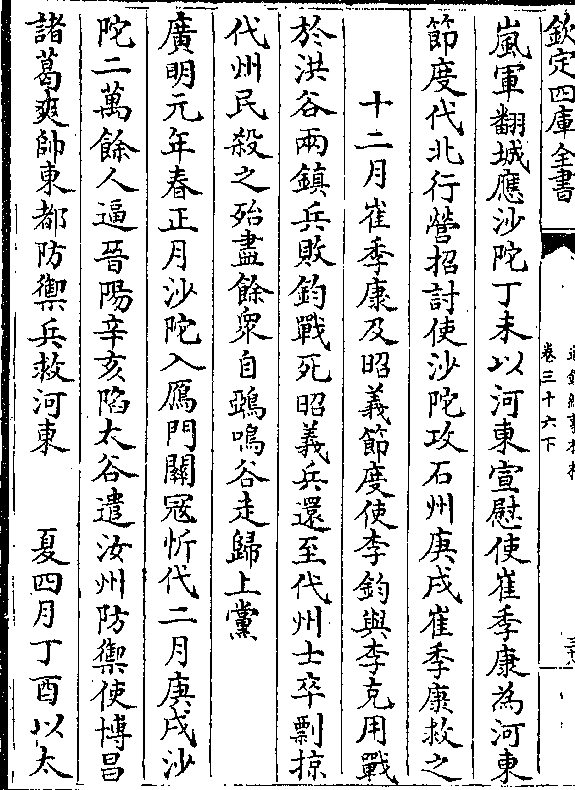 欽定四庫全書
卷三十六下
嵐軍翻城應沙陀丁未以河東宣慰使崔季康為河東
節度代北行營招討使沙陀攻石州庚戌崔季康救之
十二月崔季康及昭義節度使李鈞與李克用戰
於洪谷兩鎮兵敗鈞戰死昭義兵還至代州士卒剽掠
代州民殺之殆盡餘衆自鵶鳴谷走歸上黨
廣明元年春正月沙陀入鴈門關寇忻代二月庚戌沙
陀二萬餘人逼晉陽辛亥陷太谷遣汝州防禦使博昌
諸葛爽帥東都防禦兵救河東　夏四月丁酉以太